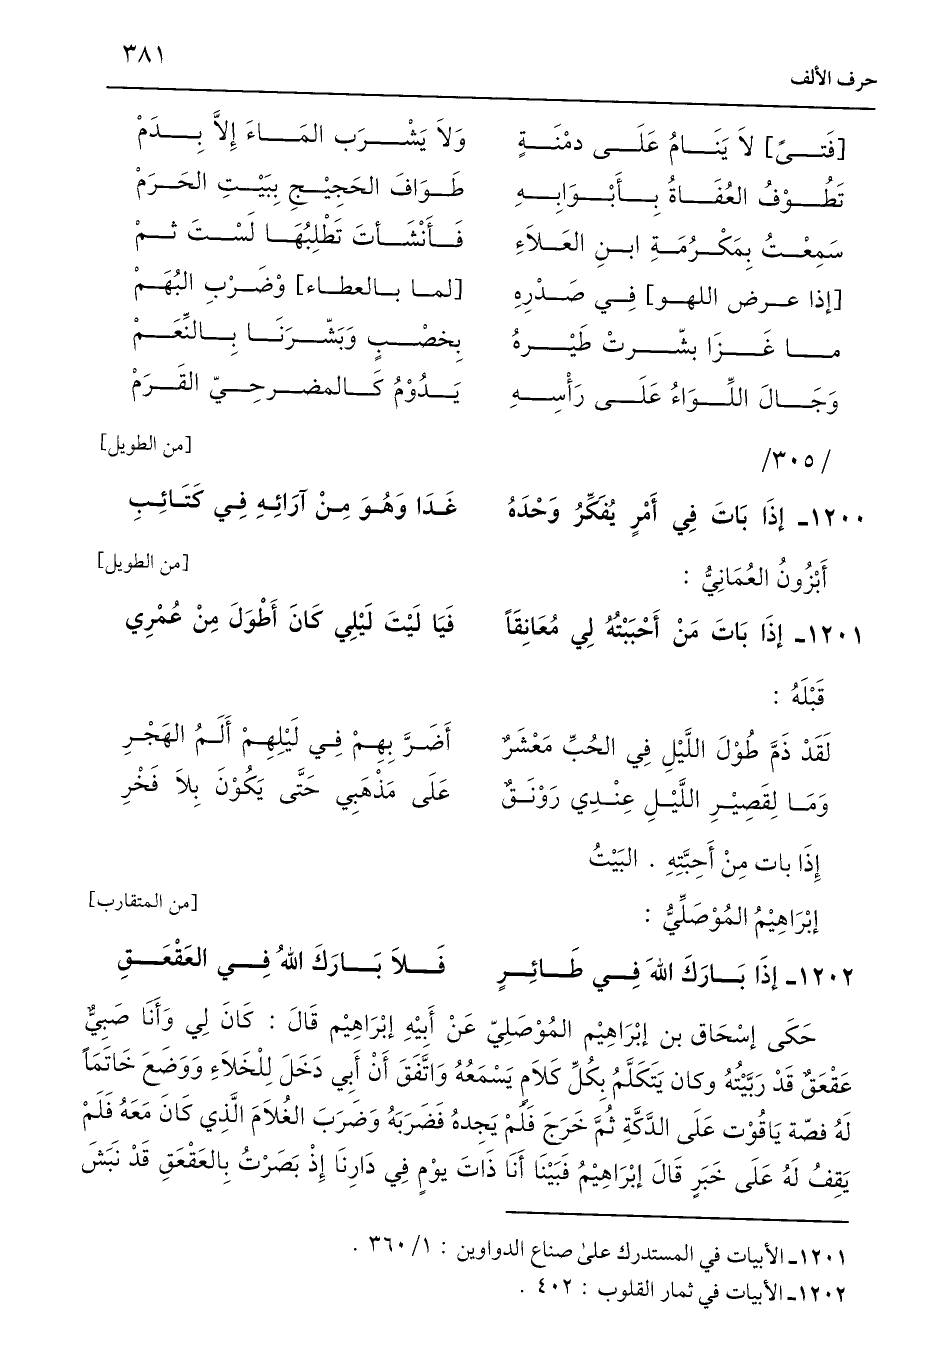 ٣٨١
حرف الألف
[فَتىً] لاَ يَنَامُ عَلَى دمْنَةٍ وَلاَ يَشْرَب المَاءَ إِلاَّ بِدَمْ
تَطُوْفُ العُفَاةُ بِأَبْوَابِهِ طَوَافَ الحَجِيْجِ بِبَيْتِ الحَرَمْ
سَمِعْتُ بِمَكْرُمَةِ ابنِ العَلاَءِ فَأَنْشَأتَ تَطْلِبُهَا لَسْتَ ثمْ
[إذا عرض اللهو] فِي صَدْرِهِ [لما بالعطاء] وْضَرْبِ البُهَمْ
ما غَزَا بشّرتْ طَيْرهُ بِخصْبٍ وَبَشّرَنَا بِالنِّعَمْ
وَجَالَ اللِّوَاءُ عَلَى رَأْسِهِ يَدُوْمُ كَالمضرحيّ القَرَمْ
[من الطويل]
/٣٠٥/
١٢٠٠ـ إذَا بَاتَ فِي أَمْرٍ يُفَكِّرُ وَحْدَهُ غَدَا وَهُوَ مِنْ آرَائِهِ فِي كَتَائِبِ
[من الطويل]
أَبْزُونُ العُمَانِيُّ :
١٢٠١ـ إذَا بَاتَ مَنْ أَحْبَبْتُهُ لِي مُعَانِقَاً فَيَا لَيْتَ لَيْلِي كَانَ أَطْوَلَ مِنْ عُمْرِي
قَبْلَهُ :
لَقَدْ ذَمَّ طُوْلَ اللَّيْلِ فِي الحُبِّ مَعْشَرٌ أَضَرَّ بِهِمْ فِي لَيْلِهِمْ أَلَمُ الهَجْرِ
وَمَا لِقَصِيْرِ اللَّيْلِ عِنْدِي رَوْنَقٌ عَلَى مَذْهَبِي حَتَّى يَكُوْنَ بِلاَ فَخْرِ
إِذَا بات مِنْ أَحِبَّتِهِ . البَيْتُ
[من المتقارب]
إبْرَاهِيْمُ المُوْصَلِّيُّ :
١٢٠٢ـ إذَا بَارَكَ اللهَ فِي طَائِرٍ فَلاَ بَارَكَ اللهُ فِي العَقْعَقِ
حَكَى إسْحَاق بن إبْرَاهِيْم المُوْصَلِيّ عَنْ أَبِيْهِ إبْرَاهِيْم قَالَ : كَانَ لِي وَأَنَا صَبِيٌّ
عَقْعَقٌ قَدْ رَبَّيْتُهُ وكان يَتَكَلَّمُ بِكُلِّ كَلَامٍ يَسْمَعُهُ وَاتَّفَقَ أَنْ أبي دَخَلَ لِلْخَلَاءِ وَوَضَعَ خَاتَمَاً
لَهُ فصّة يَاقُوْت عَلَى الدَّكَّةِ ثُمَّ خَرَجَ فَلَمْ يَجِدهُ فَضَرَبَهُ وَضَرَبَ الغُلَامَ الَّذِي كَانَ مَعَهُ فَلَمْ
يَقِفُ لَهُ عَلَى خَبَرٍ قَالَ إبْرَاهِيْمُ فَبَيْنَا أنَا ذَاتَ يوْمٍ فِي دَارِنَا إذْ بَصَرْتُ بِالعَقْعَقِ قَدْ نَبَشَ
١٢٠١ـ الأبيات في المستدرك على صناع الدواوين : ٣٦٠/١ .
١٢٠٢ـ الأبيات في ثمار القلوب : ٤٠٢ .